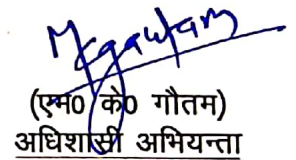 Mcgautam
(एम0 के0 गौतम)
अधिशासी अभियन्ता